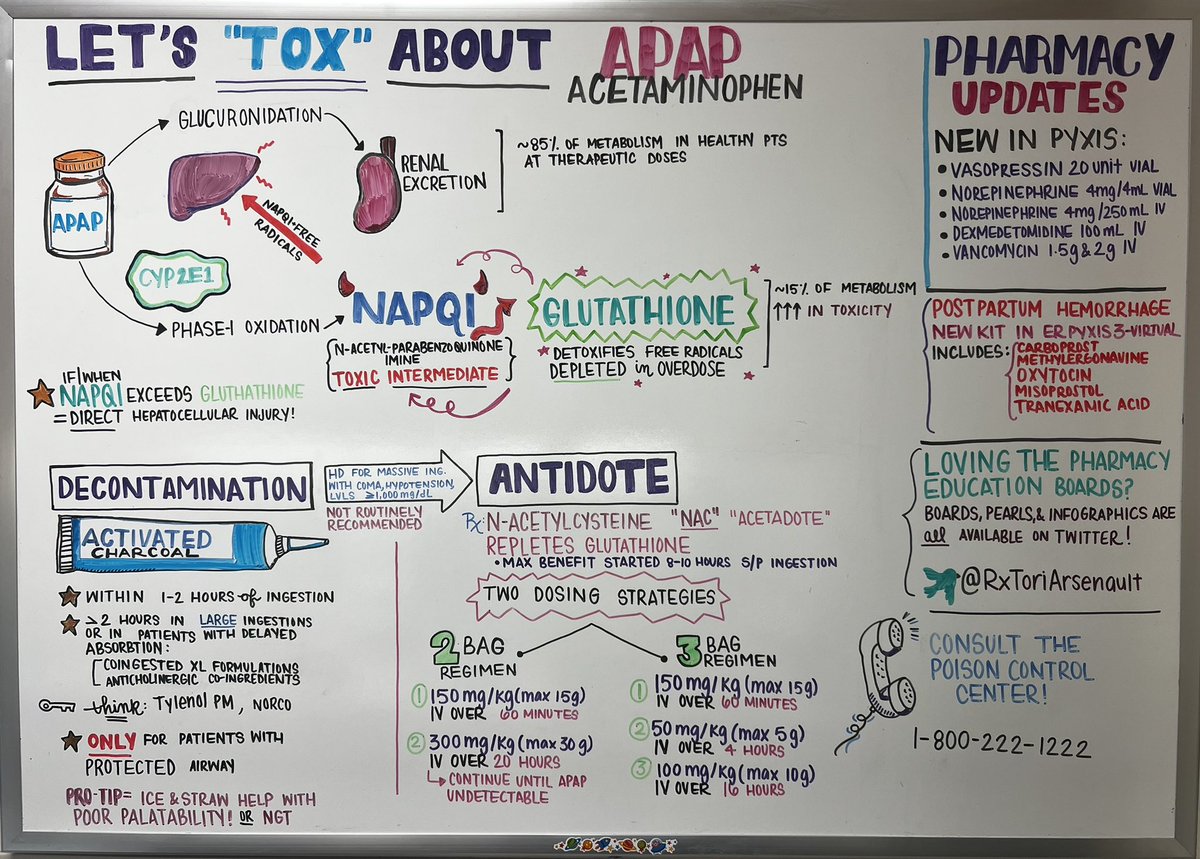 LET'S "TOX" ABOUT APAP
ACETAMINOPHEN
GLUCURONIDATION
RENAL
EXCRETION
~85% OF METABOLISM IN HEALTHY PTS
AT THERAPEUTIC DOSES
APAP
NAPQI+FREE
RADICALS
CYP2E1
PHASE-I OXIDATION
NAPQI
N-ACETYL-PARABENZOQUINONE
IMINE
TOXIC INTERMEDIATE
GLUTATHIONE
DETOXIFIES FREE RADICALS
DEPLETED in OVERDOSE
~15% OF METABOLISM
↑↑↑ IN TOXICITY
IF/WHEN
NAPQI EXCEEDS GLUTHATHIONE
= DIRECT HEPATOCELLULAR INJURY!
DECONTAMINATION
HD FOR MASSIVE ING.
WITH COMA, HYPOTENSION,
LVLS ≥1,000 mg/dL
NOT ROUTINELY
RECOMMENDED
ACTIVATED
CHARCOAL
WITHIN 1-2 HOURS of INGESTION
≥2 HOURS IN LARGE INGESTIONS
OR IN PATIENTS WITH DELAYED
ABSORBTION:
COINGESTED XL FORMULATIONS
ANTICHOLINERGIC CO-INGREDIENTS
think: Tylenol PM, NORCO
ONLY FOR PATIENTS WITH
PROTECTED AIRWAY
PRO-TIP= ICE & STRAW HELP WITH
POOR PALATABILITY! OR NGT
ANTIDOTE
Rx: N-ACETYLCYSTEINE "NAC" "ACETADOTE"
REPLETES GLUTATHIONE
• MAX BENEFIT STARTED 8-10 HOURS S/P INGESTION
TWO DOSING STRATEGIES
2 BAG
REGIMEN
① 150 mg/kg (max 15g)
IV OVER 60 MINUTES
② 300 mg/kg (max 30 g)
IV OVER 20 HOURS
↳ CONTINUE UNTIL APAP
UNDETECTABLE
3 BAG
REGIMEN
① 150 mg/kg (max 15g)
IV OVER 60 MINUTES
② 50 mg/kg (max 5 g)
IV OVER 4 HOURS
③ 100 mg/kg (max 10g)
IV OVER 16 HOURS
PHARMACY
UPDATES
NEW IN PYXIS:
• VASOPRESSIN 20 unit VIAL
• NOREPINEPHRINE 4mg/4mL VIAL
• NOREPINEPHRINE 4mg/250mL IV
• DEXMEDETOMIDINE 100mL IV
• VANCOMYCIN 1.5g & 2g IV
POSTPARTUM HEMORRHAGE
NEW KIT IN ER PYXIS 3-VIRTUAL
INCLUDES: CARBOPROST
METHYLERGONAVINE
OXYTOCIN
MISOPROSTOL
TRANEXAMIC ACID
LOVING THE PHARMACY
EDUCATION BOARDS?
BOARDS, PEARLS, & INFOGRAPHICS ARE
all AVAILABLE ON TWITTER!
@RxToriArsenault
CONSULT THE
POISON CONTROL
CENTER!
1-800-222-1222